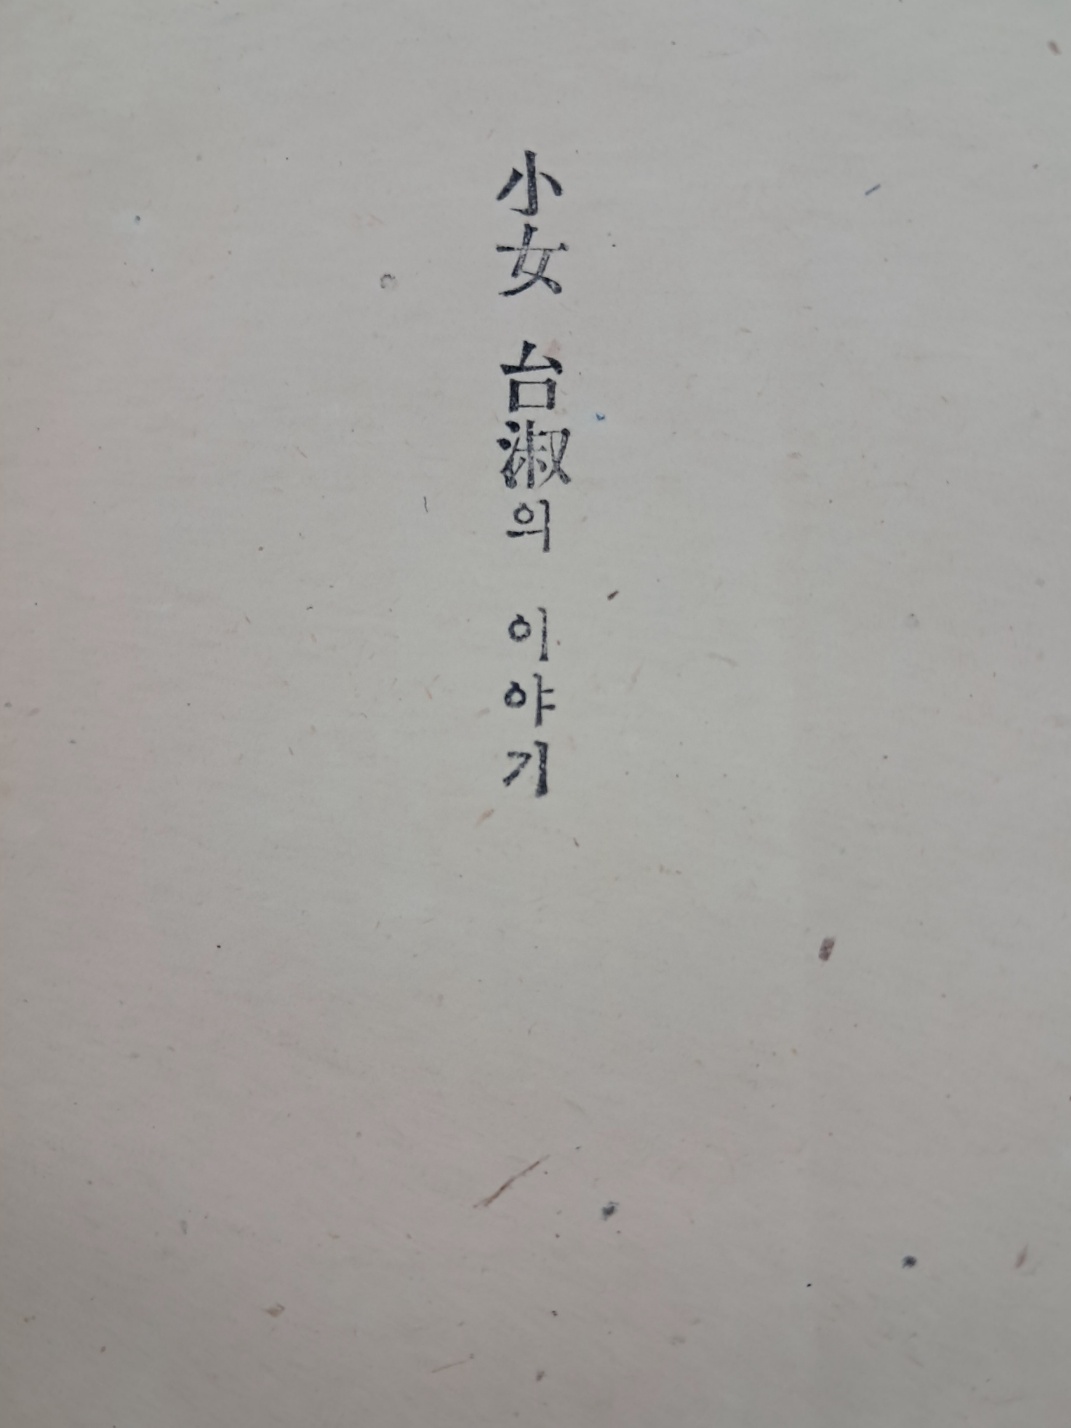 小女 台淑의 이야기